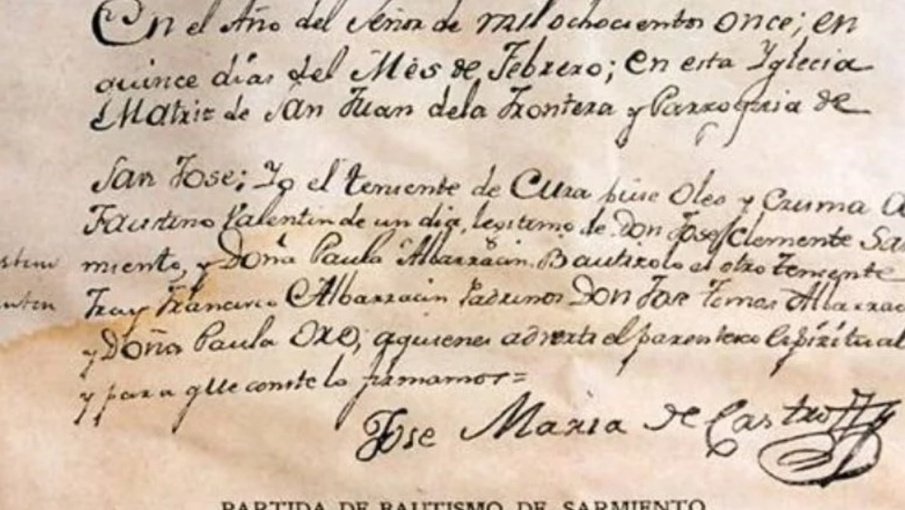 En el Año del Señor de mil ochocientos once; en
quince días del Més de Febrero; en esta Yglecia
Matriz de San Juan dela Frontera y Parroquia de
San Jose; Yo el teniente de Cura puse Oleo y Crisma a
Faustino Valentin de un dia, legitimo de Don Jose Clemente Sar
miento, y Doña Paula Albarracin. Bautizolo el otro teniente
Fray Francisco Albarracin Padrinos Don Jose Tomas Albarrac
y Doña Paula Oro; aquienes adverti el parentesco Espiritual
y para que conste lo firmamos=
Jose Maria de Castro
PARTIDA DE BAUTISMO DE SARMIENTO